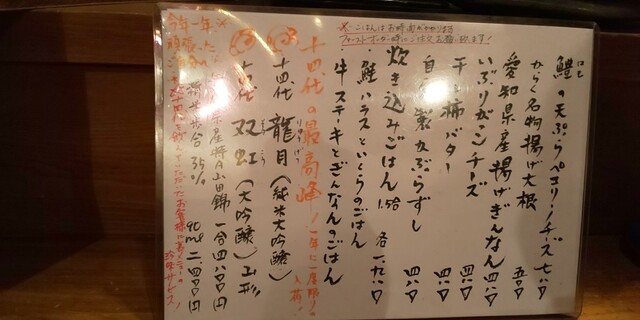 ※ごはんはお時間がかかります
ファーストオーダー時にご注文お願い致します!
鱧の天ぷらペコリーノチーズ 七八〇
からく名物揚げ大根 五〇〇
愛知県産揚げぎんなん 四八〇
いぶりがっこチーズ 四八〇
干し柿バター 四八〇
自家製かぶらずし 四八〇
炊き込みごはん 1.5合 各一、九八〇
鮭ハラスといくらのごはん
牛ステーキとぎんなんのごはん
十四代の最高峰!一年に一度限りの入荷!
十四代 龍月(純米大吟醸)
十四代 双虹(大吟醸)山形
県産特A山田錦 一合四八〇〇円
精米歩合35% 90ml 二四〇〇円
今年一年